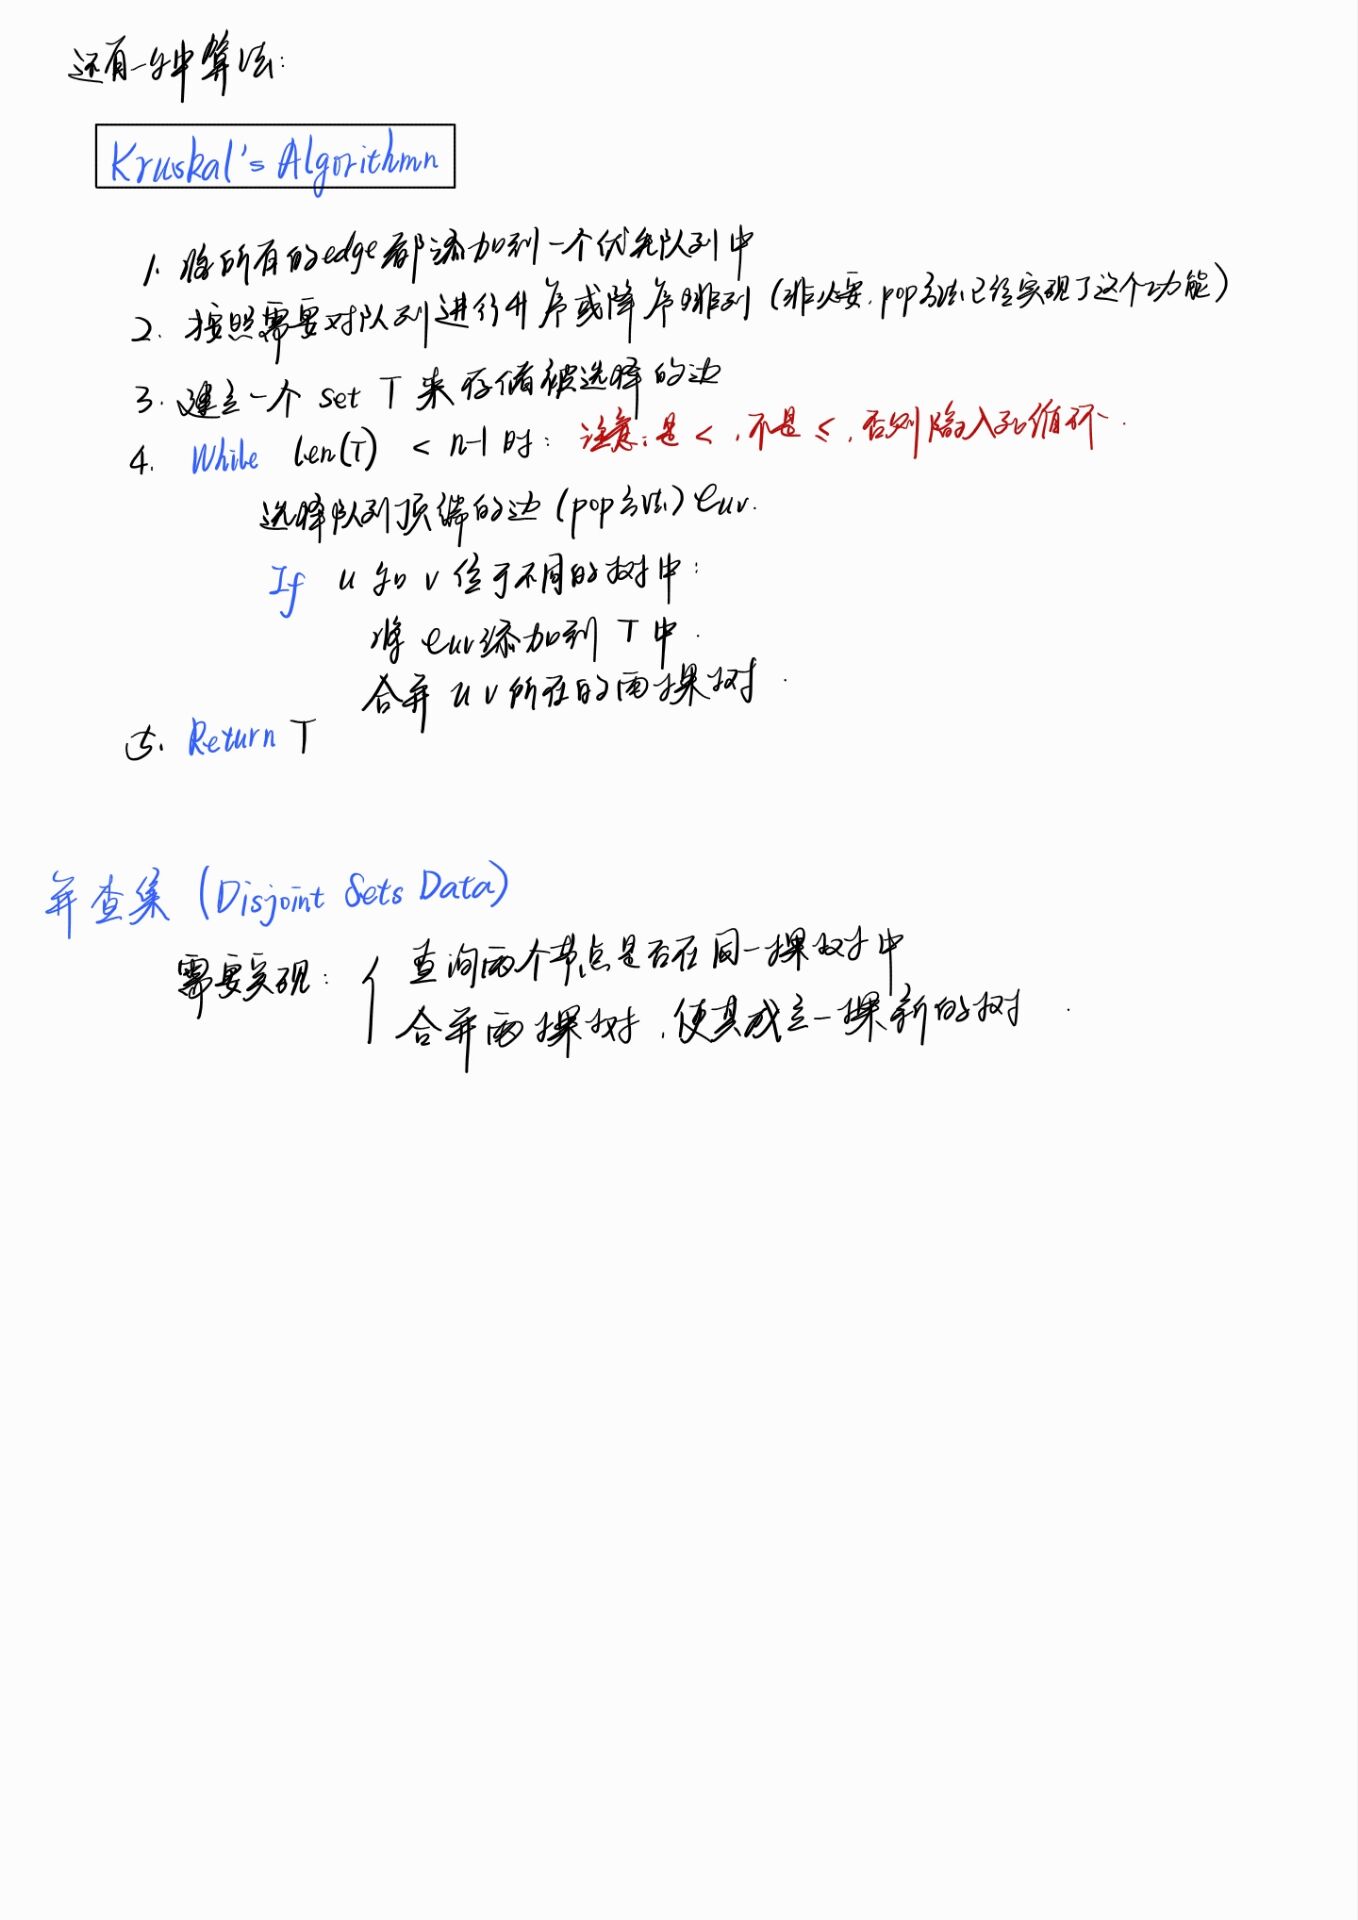 还有一种算法:
Kruskal's Algorithmn
1. 将所有的edge都添加到一个优先队列中
2. 按照需要对队列进行升序或降序排列 (非必要, pop方法已经实现了这个功能)
3. 建立一个 set T 来存储被选择的边
4. While len(T) < n-1 时: 注意:是 <, 不是 ≤, 否则陷入死循环.
选择队列顶端的边 (pop方法) euv.
If u和v位于不同的树中:
将 euv添加到 T 中.
合并 u v 所在的两棵树.
5. Return T
并查集 (Disjoint Sets Data)
需要实现: { 查询两个节点是否在同一棵树中
合并两棵树, 使其成立一棵新的树.